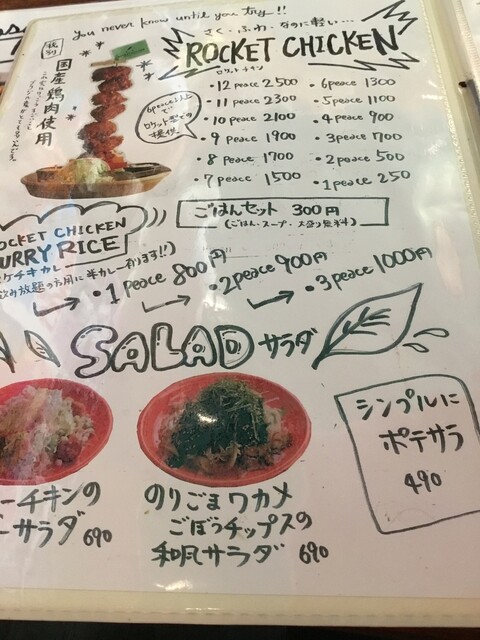 you never know until you try!!
さく・ふわ・なのに軽い…
ROCKET CHICKEN
ロケットチキン
国産鶏肉使用
6peace以上で
ロケット型での
提供
・12 peace 2500
・11 peace 2300
・10 peace 2100
・9 peace 1900
・8 peace 1700
・7 peace 1500
・6peace 1300
・5peace 1100
・4peace 900
・3peace 700
・2peace 500
・1peace 250
ごはんセット 300円
(ごはん・スープ・大盛り無料)
ROCKET CHICKEN
CURRY RICE
ケチキカレー
飲み放題の方用に半カレー有ります!!)
・1peace 800円
・2peace 900円
・3peace 1000円
SALAD サラダ
ーチキンの
ーサラダ 690
のりごまワカメ
ごぼうチップスの
和風サラダ 690
シンプルに
ポテサラ
490